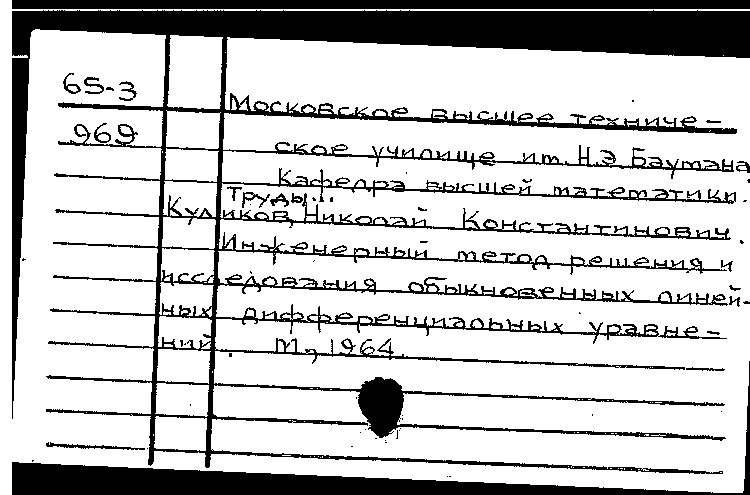 65-3
969
Московское высшее техниче-
ское училище им. Н.Э. Баумана.
Кафедра высшей математики.
Труды...
Куликов, Николай Константинович.
Инженерный метод решения и
исследования обыкновенных линей-
ных дифференциальных уравне-
ний. М., 1964.